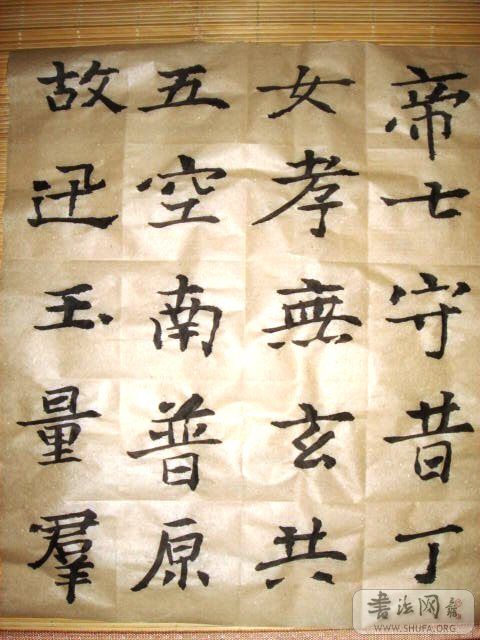 帝士守昔丁
女孝無玄共
五空南普原
故迅玉量羣
書法网
WWW.SHUFA.ORG